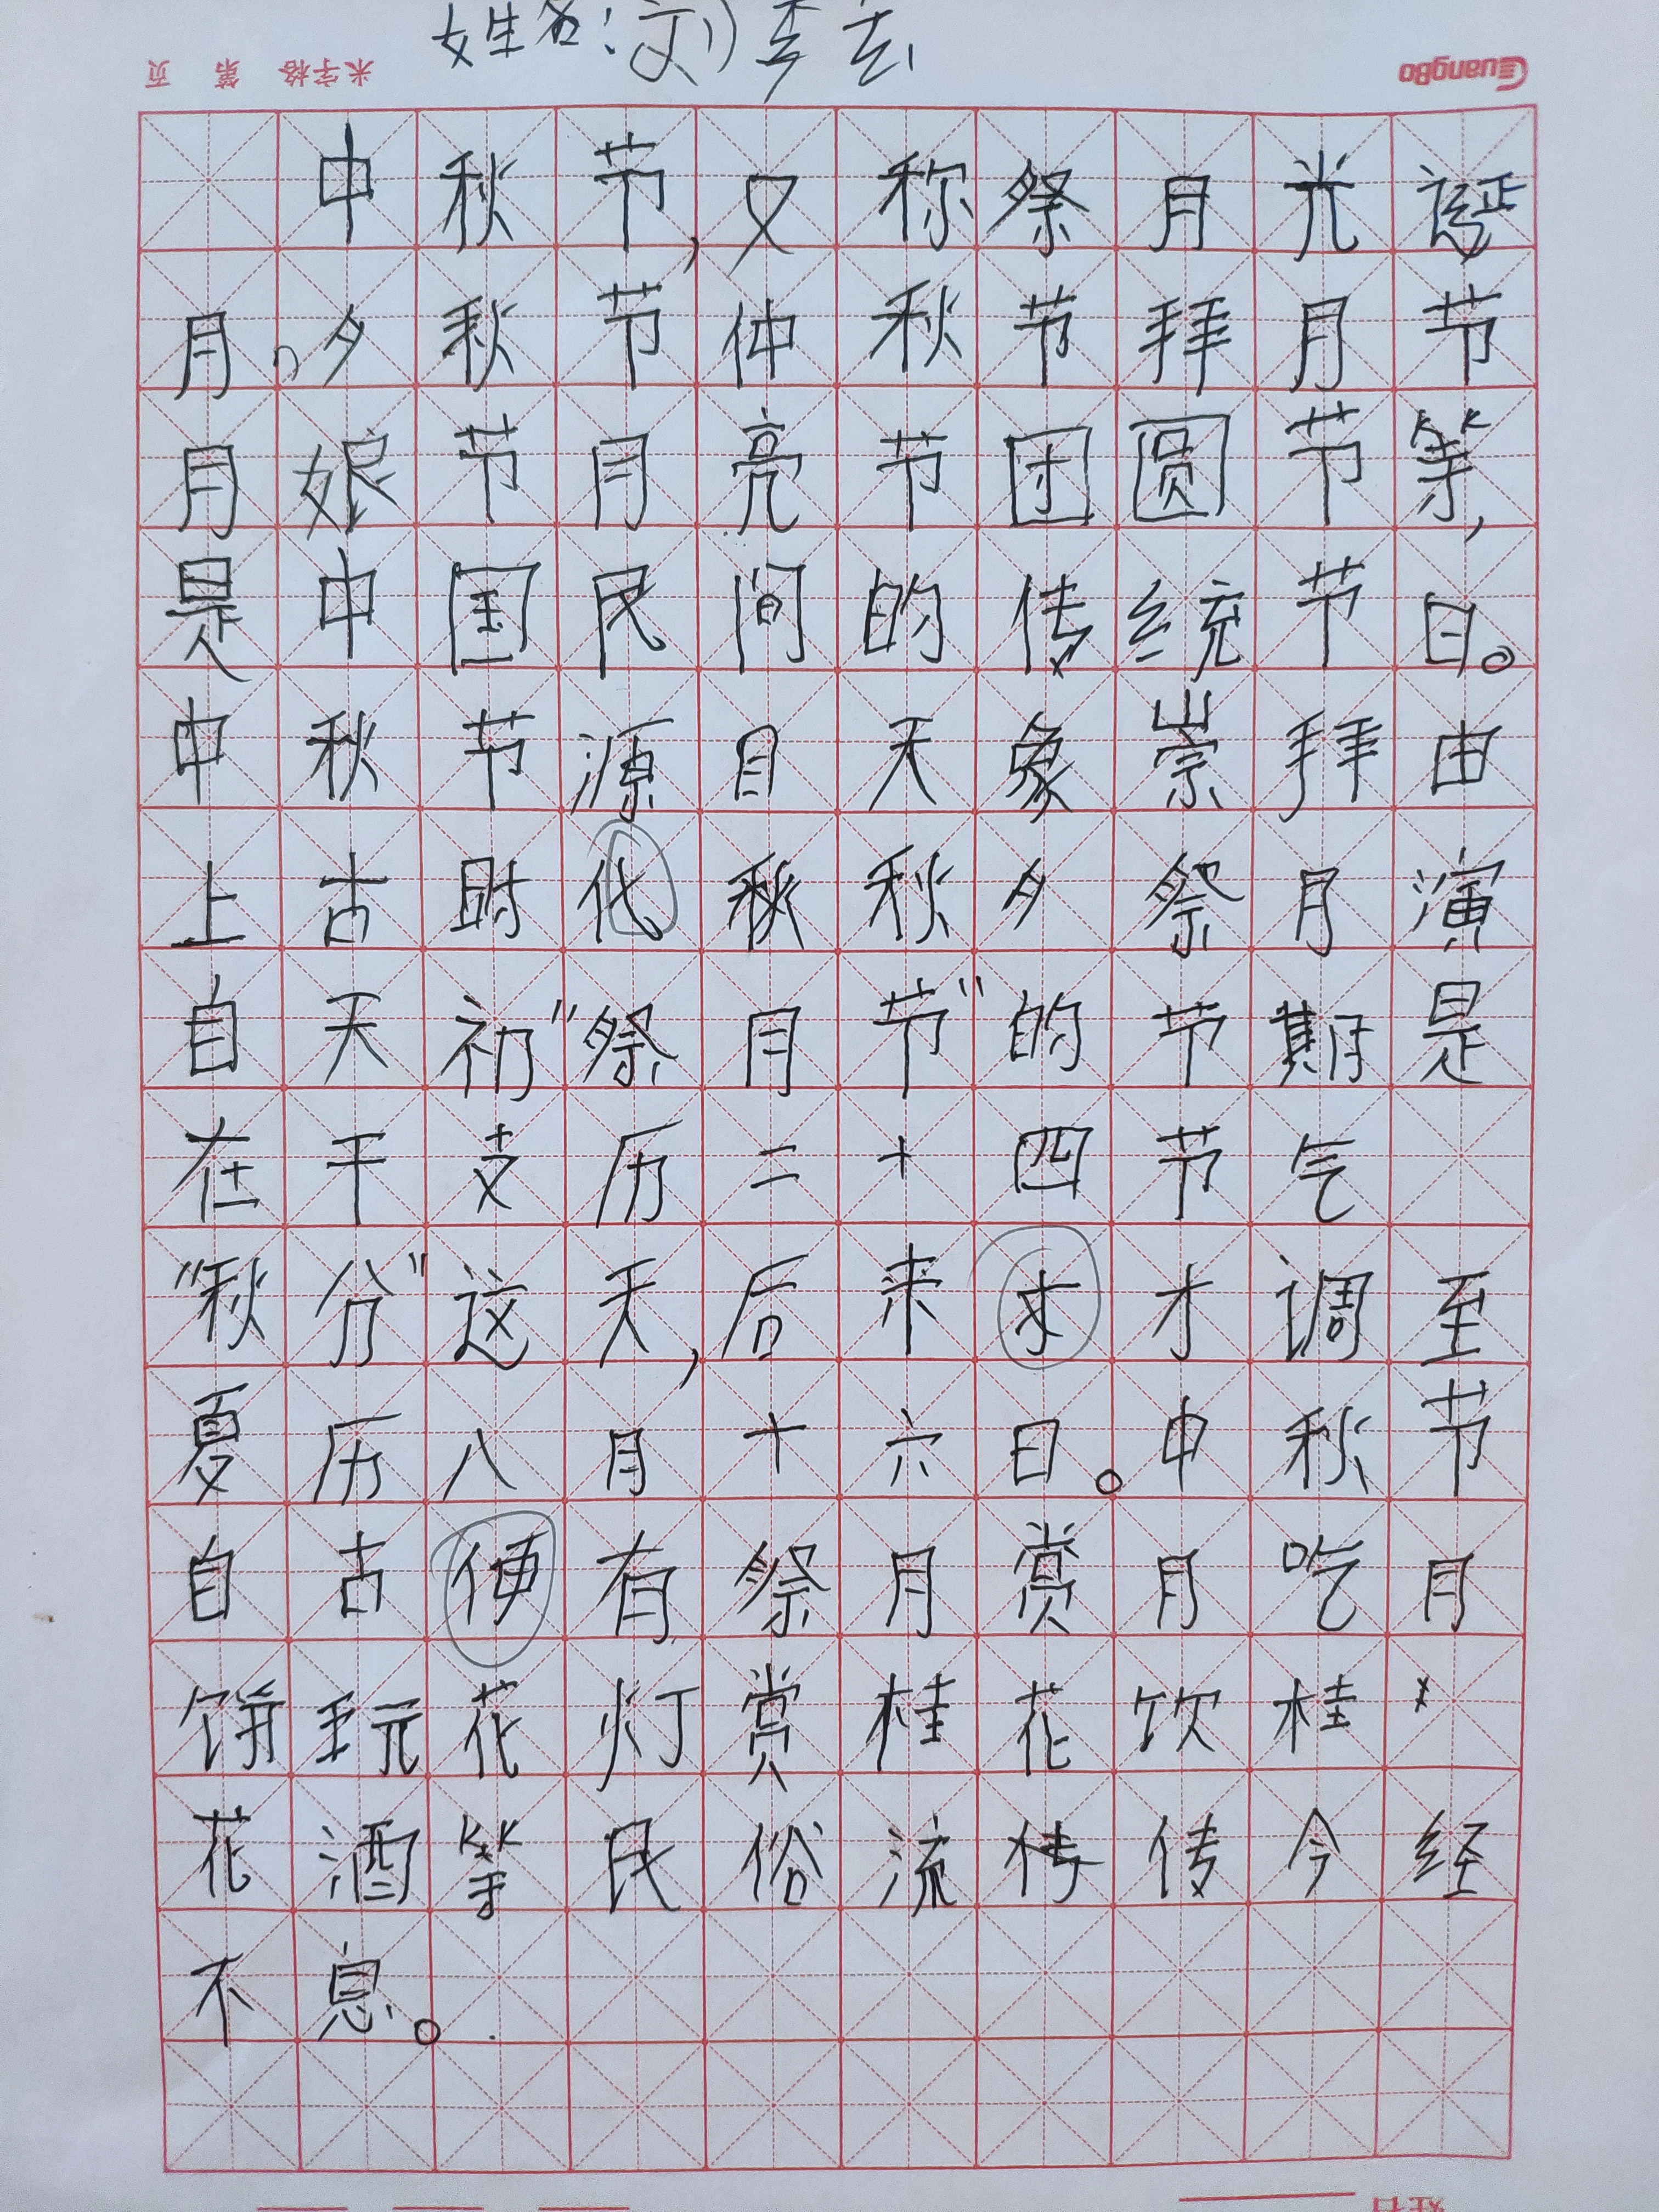 姓名：刘
米字格 第 页
GuangBo
中秋节,又称祭月光诞
月、夕秋节仲秋节拜月节
月娘节月亮节团圆节等,
是中国民间的传统节日。
中秋节源自天象崇拜由
上古时化秋秋夕祭月演
自天初"祭月节"的节期是
在干支历二十四节气
"秋分"这天,后来才才调至
夏历八月十六日。中秋节
自古便有祭月赏月吃月
饼玩花灯赏桂花饮桂
花酒等民俗流传传今经
不息。